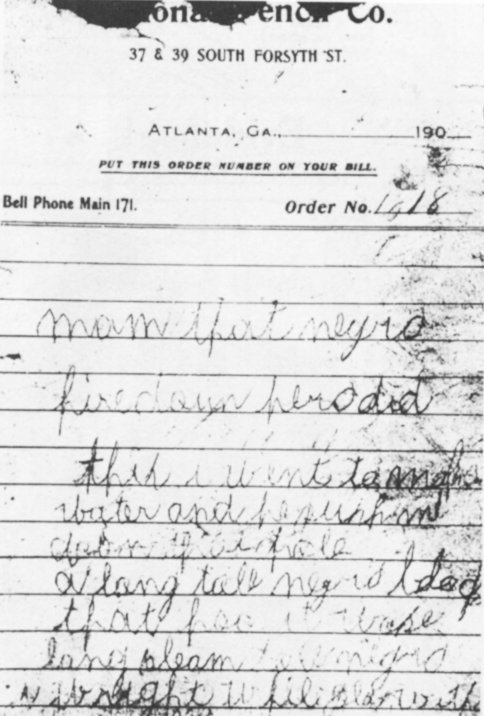 Co.
37 & 39 SOUTH FORSYTH ST.
ATLANTA, GA., 190
PUT THIS ORDER NUMBER ON YOUR BILL.
Bell Phone Main 171. Order No. 1918
mam that negro
hire doun here did
this i went to make
water and he push me
doun that hole
a long tall negro black
that hoo it wase
long sleam tall negro
i wright while play with